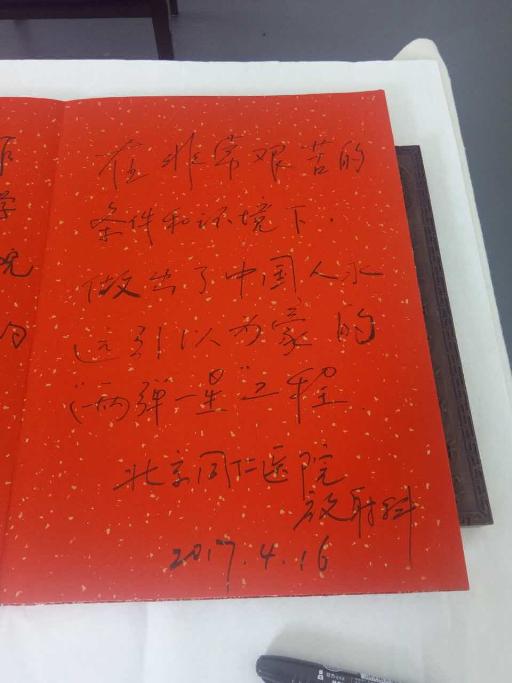 在非常艰苦的
条件和环境下.
做出了中国人永
远引以为豪的
“两弹一星”工程.
北京同仁医院
放射科
2017.4.16
学
院